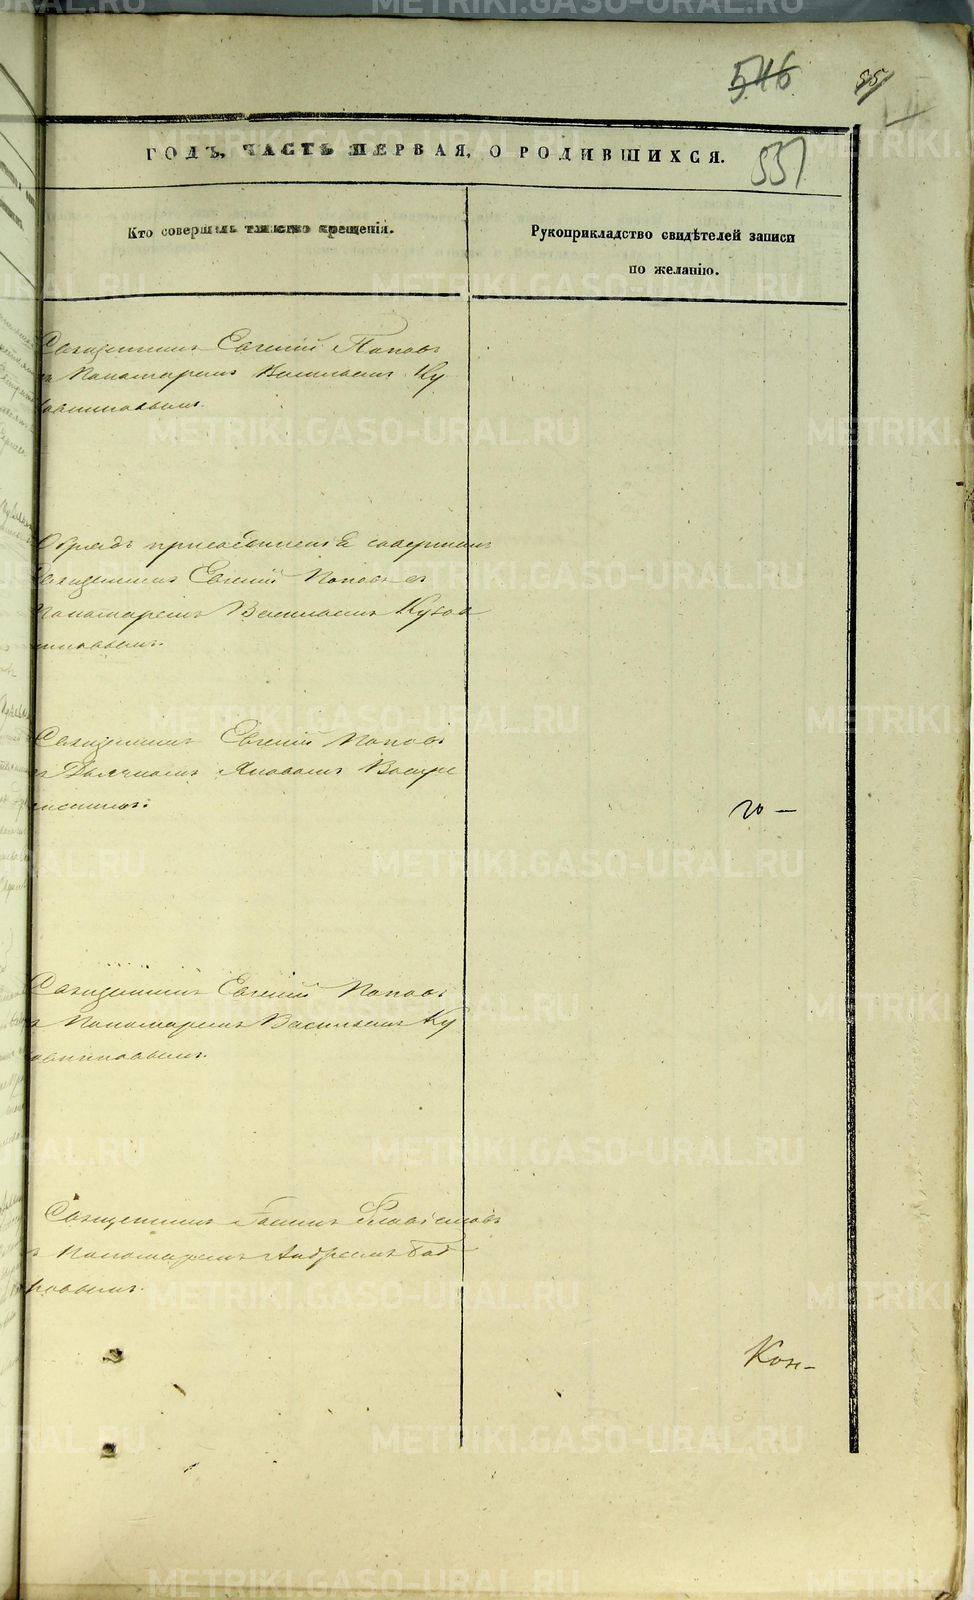 546
55
ГОДЪ, ЧАСТЬ ПЕРВАЯ, О РОДИВШИХСЯ.
551
Кто совершалъ таинство крещенія.
Рукоприкладство свидѣтелей записи
по желанію.
Священникъ Евгеній Поповъ
съ Пономаремъ Васильемъ Ку
Обрядъ присоединенія совершилъ
Священникъ Евгеній Поповъ съ
Пономаремъ Васильемъ
Священникъ Евгеній Поповъ
съ Дьячкомъ Яковомъ Воскре
сенскимъ.
го —
Священникъ Евгеній Поповъ
съ Пономаремъ Васильемъ Ку
Священникъ
съ Пономаремъ Андреемъ
Кон-
METRIKI.GASO-URAL.RU